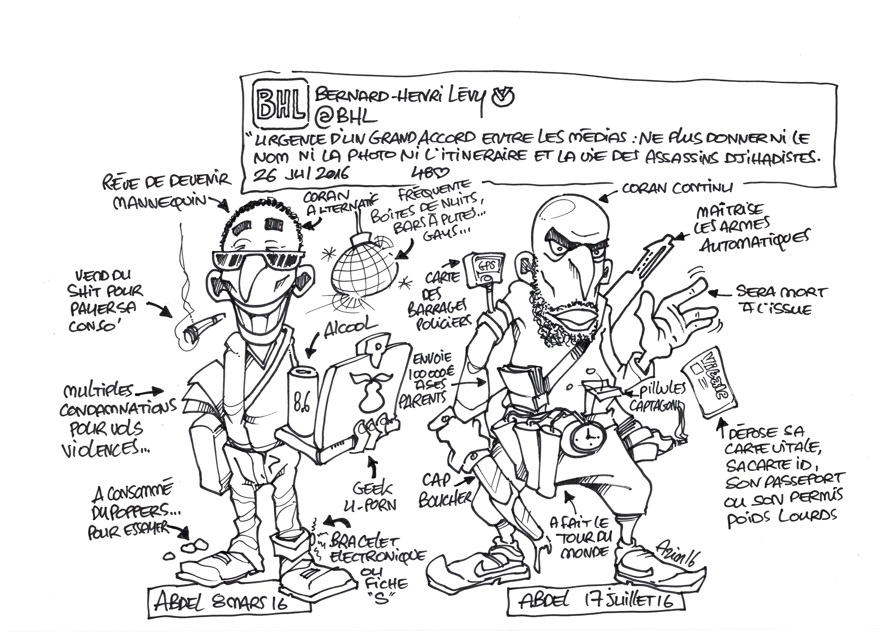 BHL
BERNARD-HENRI LÉVY
@BHL
"URGENCE D'UN GRAND ACCORD ENTRE LES MÉDIAS : NE PLUS DONNER NI LE
NOM NI LA PHOTO NI L'ITINERAIRE ET LA VIE DES ASSASSINS DJIHADISTES.
26 JUI 2016 48
RÊVE DE DEVENIR
MANNEQUIN
CORAN
ALTERNATIF
FRÉQUENTE
BOÎTES DE NUITS,
BARS À PUTES...
GAYS...
VEND DU
SHIT POUR
PAYER SA
CONSO'
ALCOOL
8.6
MULTIPLES
CONDAMNATIONS
POUR VOLS
VIOLENCES...
A CONSOMMÉ
DU POPPERS...
POUR ESSAYER
GEEK
U-PORN
BRACELET
ELECTRONIQUE
OU
FICHE
"S"
ABDEL 8 MARS 16
CORAN CONTINU
MAÎTRISE
LES ARMES
AUTOMATIQUES
GPS
CARTE
DES
BARRAGES
POLICIERS
SERA MORT
À L'ISSUE
ENVOIE
100 000€
À SES
PARENTS
PILLULES
CAPTAGON
Vitale
DÉPOSE SA
CARTE VITALE,
SA CARTE ID,
SON PASSEPORT
OU SON PERMIS
POIDS LOURDS
CAP
BOUCHER
A FAIT LE
TOUR DU
MONDE
ABDEL 17 JUILLET 16